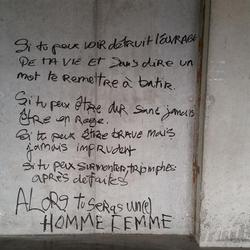 Si tu peux voir détruit l'ouvrage
DE TA VIE ET sans dire un
mot te remettre à batir.
Si tu peux être dur sans jamais
être en rage.
Si tu peux être brave mais
jamais imprudent
Si tu peux surmonter, triomphe
après défaites
ALORS tu seras un(e)
HOMME FEMME